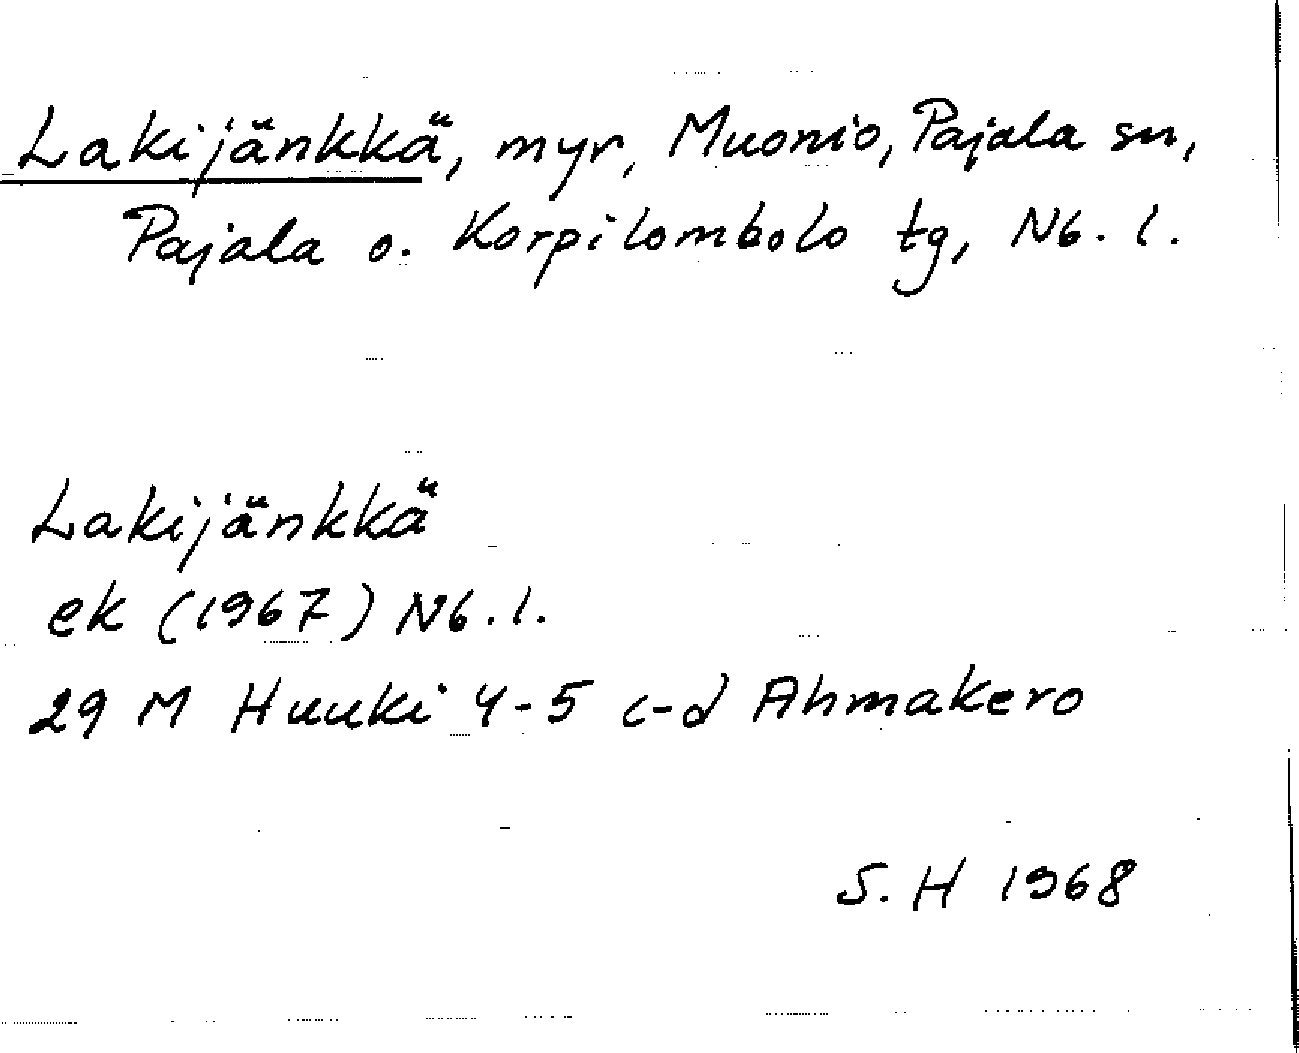 Lakijänkkä, myr, Muonio, Pajala sn,
Pajala o. Korpilombolo tg, Nb. l.
Lakijänkkä
ek (1967) Nb. l.
29 M Huuki 4-5 c-d Ahmakero
S. H 1968